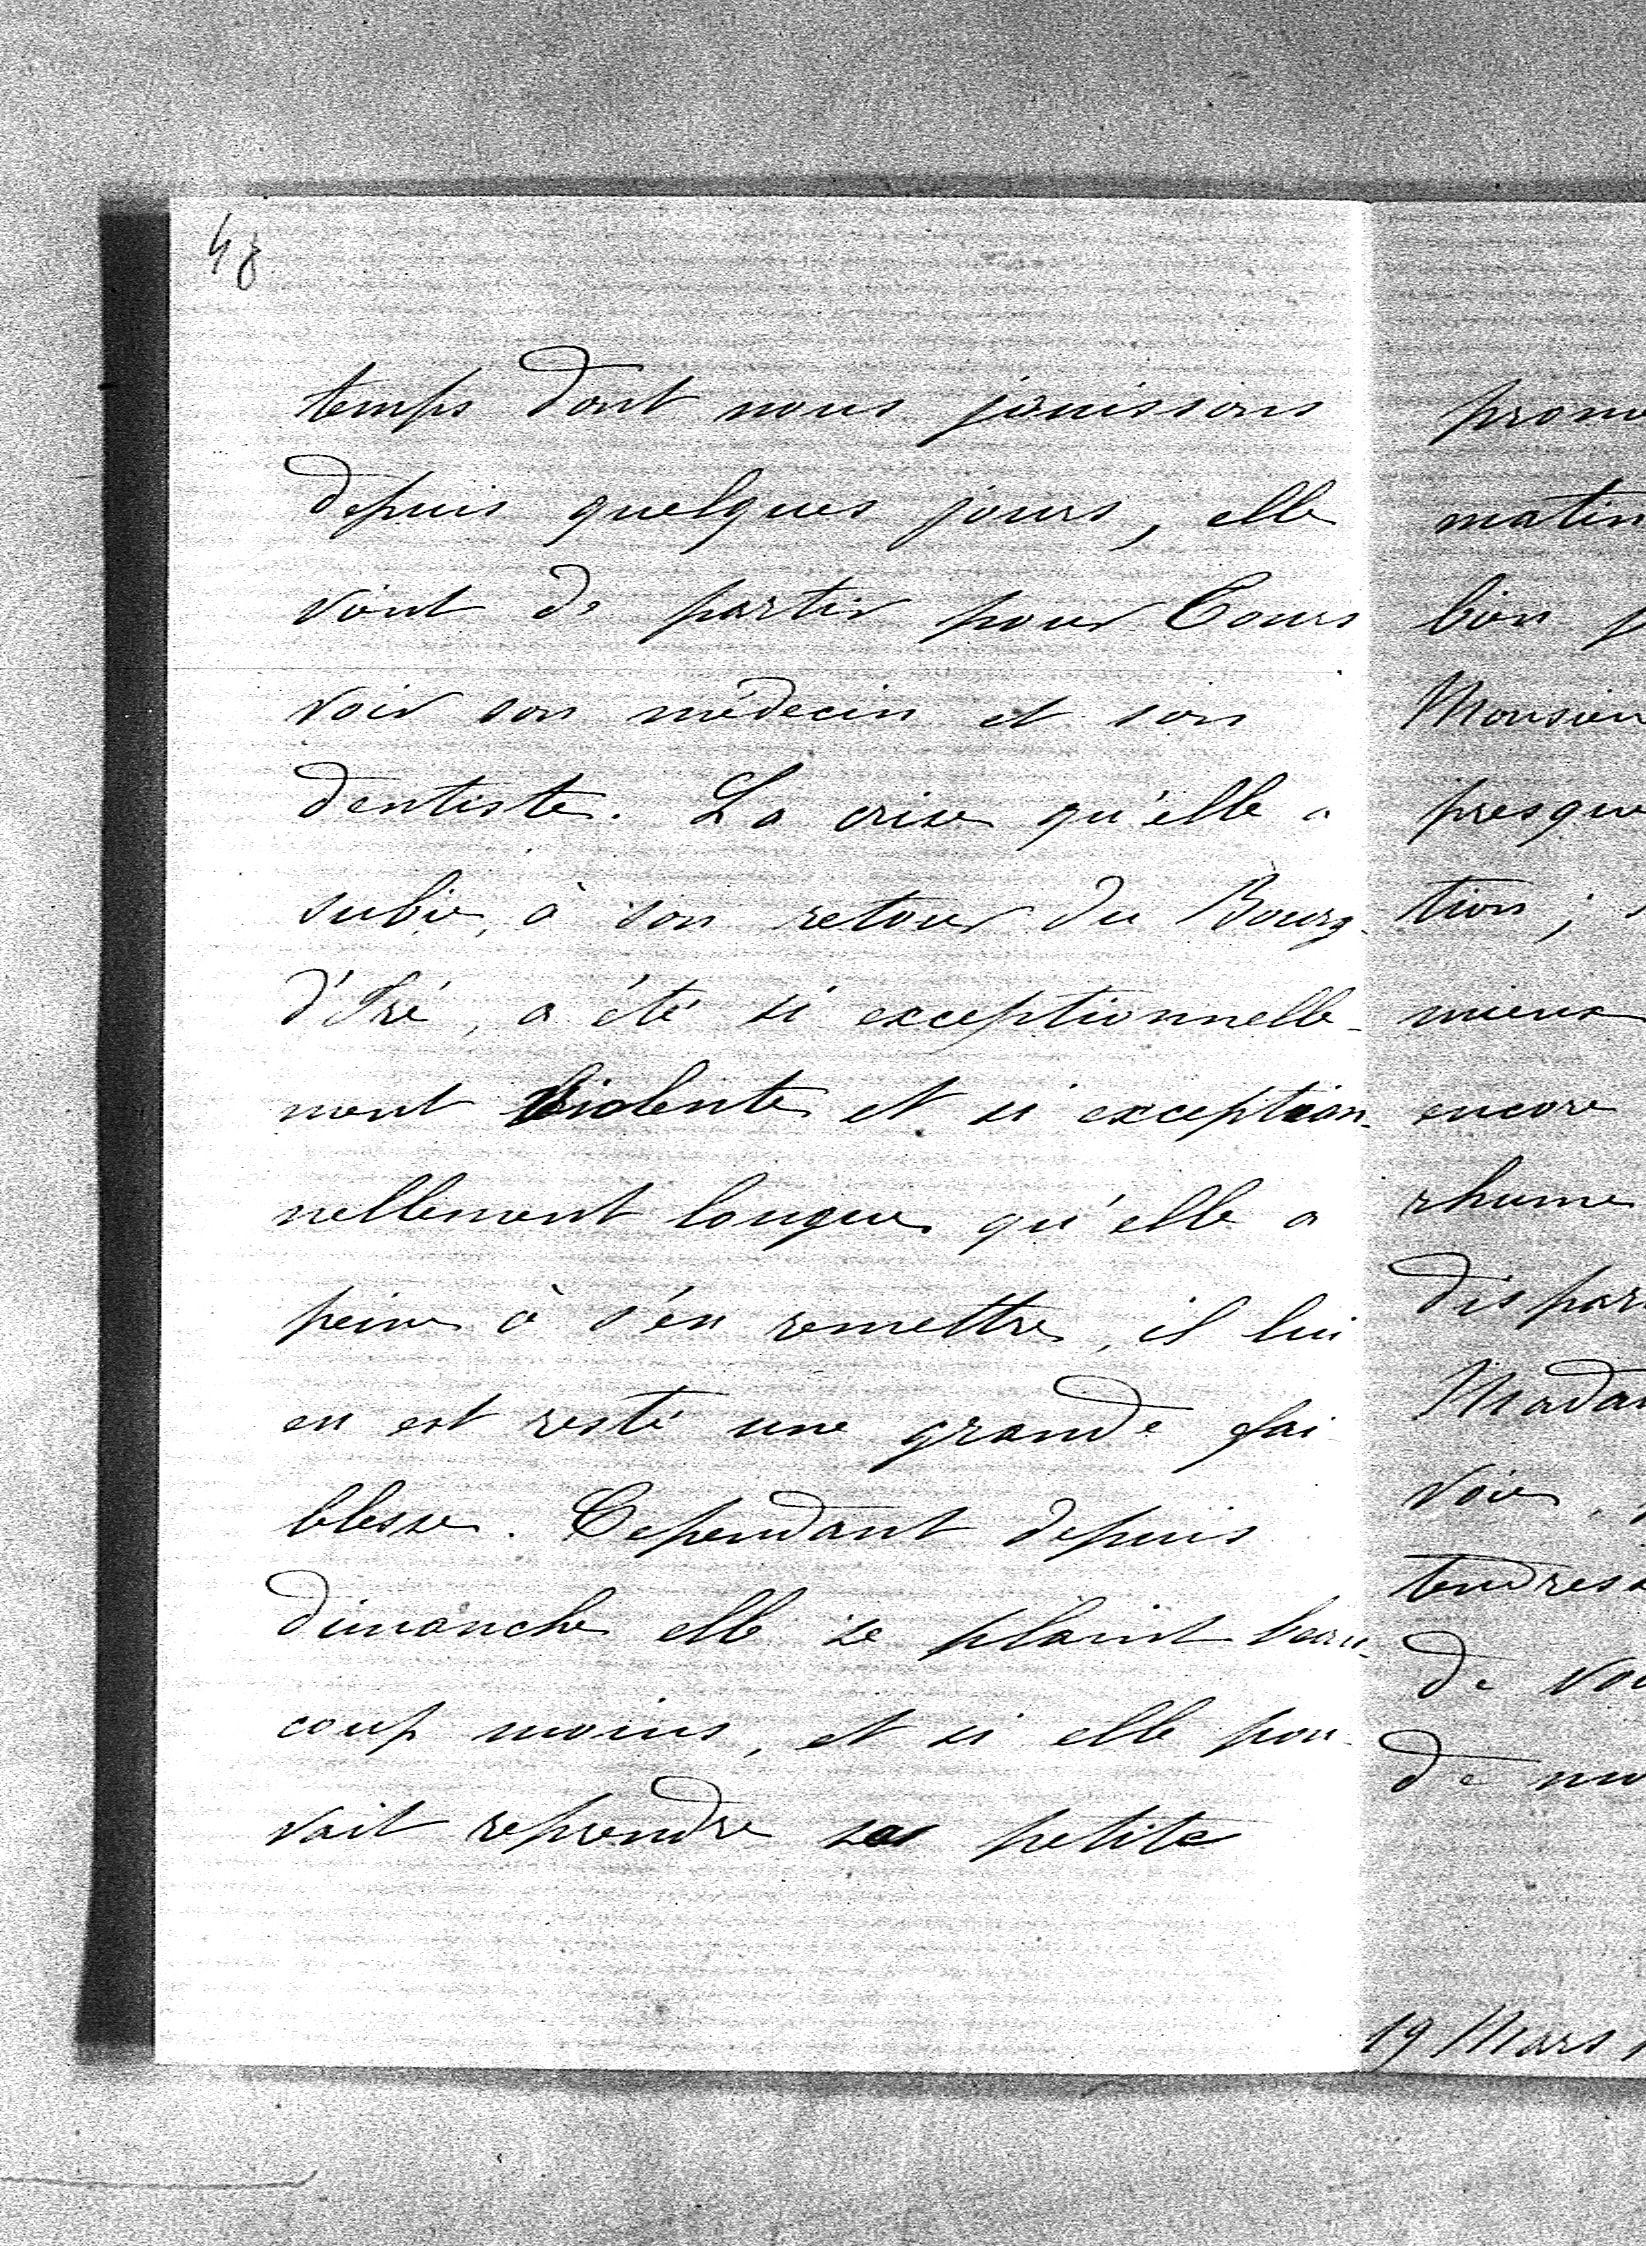 48
temps dont nous jouissons
depuis quelques jours, elle
vient de partir pour Tours
voir son médecin et son
dentiste. La crise qu'elle a
subie, à son retour du Bourg-
d'Iré, a été si exceptionnelle-
ment violente et si exception-
nellement longue qu'elle a
peine à s'en remettre, il lui
en est resté une grande fai-
blesse. Cependant depuis
dimanche elle se plaint beau-
coup moins, et si elle pou-
vait reprendre ses petite
prome
matin
bien p
Monsieur
presque
tion ;
mieux
encore
rhume
dispar
Madam
voie,
tendress
de vou
de
19 Mars